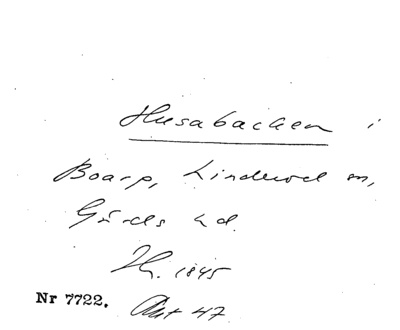 Husabacken i
Boarp, Linderöd sn,
Gärds hd.
Hh. 1845
Nr 7722. Akt 47